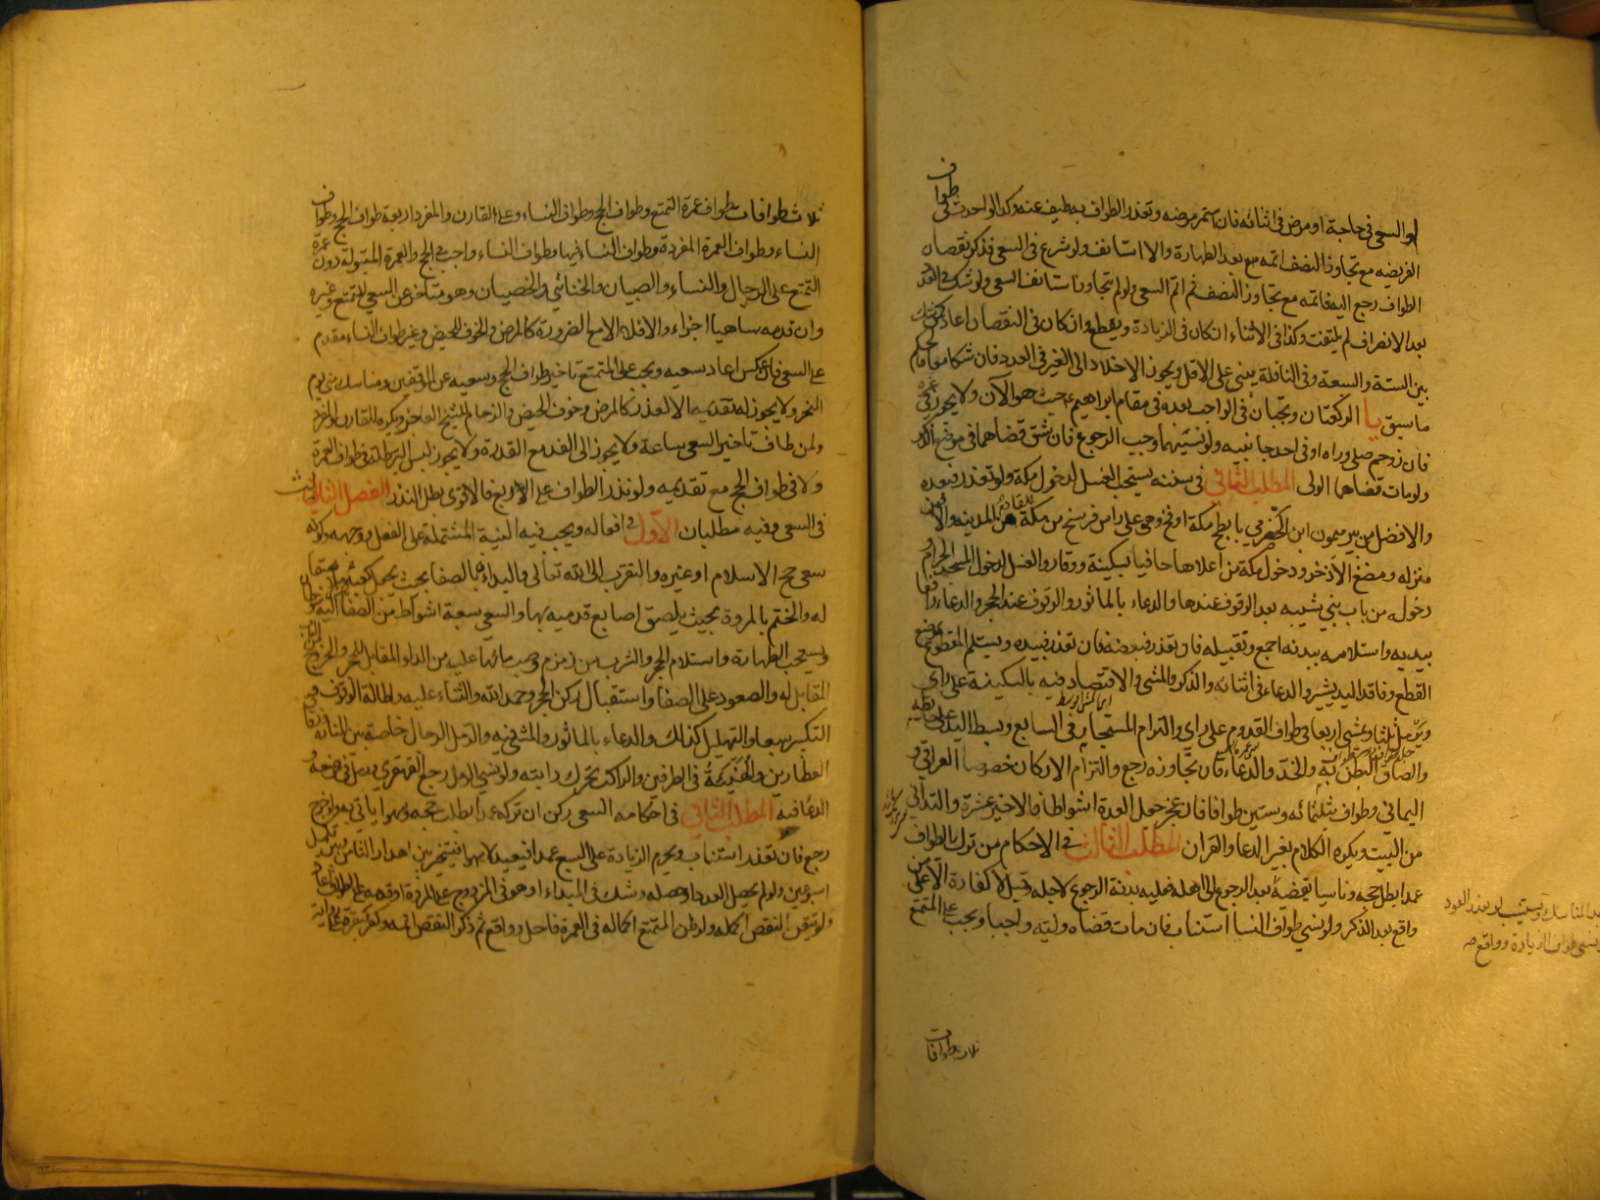 او السعي في حاجة او مرض في اثنائه فان استمر مرضه وتعذر الطواف به طيف عنه وكذا لو احدث في طواف
الفريضه مع تجاوز النصف اتمه مع بعد الطهارة والا استانف ولو شرع في السعي فذكر نقصان
الطواف رجع اليه فاتمه مع تجاوز النصف ثم اتم السعي ولو لم يتجاوز استانف السعي ولو شك في العدد
بعد الانصراف لم يلتفت وكذا في الاثناء ان كان في الزيادة ويقطع وان كان في النقصان اعاد كمن شك
بين الستة والسبعة وفي النافلة يبني على الاقل ويجوز الاخلاد الى الغير في العدد فان شكا معا فالحكم
ما سبق يا الركعتان وتجبان في الواجب بعده في مقام ابراهيم حيث هو الآن ولا يجوز في غيره
فان زوحم صلى وراه او في احد جانبيه ولو نسيهما وجب الرجوع فان شق قضاهما في موضع الذكر
ولو مات قضاهما الولي المطلب الثاني في سننه يستحب الغسل لدخول مكة ولو تعذر فبعده
والافضل من بير ميمون ابن الحضرمي بابطح مكة او فخ وهي على راس فرسخ من مكة للقادم من المدينه والا فمن
منزله ومضغ الاذخر ودخول مكة من اعلاها حافيا بسكينة ووقار والغسل لدخول المسجد الحرام و
دخوله من باب بني شيبه بعد الوقوف عندها والدعاء بالماثور والوقوف عند الحجر والدعاء رافعا
يديه واستلامه ببدنه اجمع وتقبيله فان تعذر فببعضه فان تعذر فبيده ويستلم المقطوع بموضع
القطع وفاقد اليد يشير والدعاء في اثنائه والذكر والمشي والاقتصاد فيه بالسكينة على راي
ويرمل ثلثا ويمشي اربعا في طواف القدوم على راي والتزام المستجار في السابع وبسط اليد على حايطه
والصاق البطن به والخد والدعاء فان تجاوزه رجع والتزام الاركان خصوصا العراقي و
اليماني وطواف ثلثمائه وستين طوافا فان عجز جعل العدة اشواطا فالاخير عشرة والتداني
من البيت ويكره الكلام بغير الدعا والقران المطلب الثالث في الاحكام من ترك الطواف
عمدا بطل حجه وناسيا يقضيه بعد الرجوع الى اهله فعليه بدنة الرجوع لاجله وقيل لا كفارة الا على من
واقع بعد الذكر ولو نسي طواف النسا استناب فان مات قضاه وليه واجبا ويجب على المتمتع
بعد المناسك ويستنيب لو تعذر العود
نسي طواف الزيارة وواقع
ثلاث طوافات
ثلاث طوافات طواف عمرة التمتع وطواف الحج وطواف النساء وعلى القارن والمفرد اربعة طواف الحج وطواف
النساء وطواف العمرة المفردة وطواف النساء فيها وطواف النساء واجب في الحج والعمرة المبتولة دون عمرة
التمتع على الرجال والنساء والصبيان والخناثي والخصيان وهو متاخر عن السعي للمتمتع وغيره
وان قدمه ساهيا اجزاء والا فلا الا مع الضرورة كالمرض والخوف للحيض وغير طواف النساء مقدم
على السعي فان عكس اعاد سعيه ويجب على المتمتع تاخير طواف الحج وسعيه عن الموقفين ومناسك منى يوم
النحر ولا يجوز له تقديمه الا لعذر كالمرض وخوف الحيض والزحام للشيخ العاجز ويكره للقارن والمفرد
ولمن طاف تاخير السعي ساعة ولا يجوز الى الغد مع القدرة ولا يجوز لبس البرطلة في طواف العمرة
ولا في طواف الحج مع تقديمه ولو نذر الطواف على الاربع فالاقوى بطل النذر الفصل الثالث
في السعي وفيه مطلبان الاول في افعاله ويجب فيه النية المشتملة على الفعل ووجهه وكونه
سعي حج الاسلام او غيره والتقرب الى الله تعالى والبداءة بالصفا بحيث يجعل كعبيه ملاصقا
له والختم بالمروة بحيث يلصق اصابع قدميه بها والسعي سبعة اشواط من الصفا اليه شوطان
ويستحب الطهارة واستلام الحجر والشرب من زمزم وصب مائها عليه من الدلو المقابل للحجر والخروج من الباب
المقابل له والصعود على الصفا واستقبال ركن الحجر وحمد الله والثناء عليه واطالة الوقوف و
التكبير سبعا والتهليل كذلك والدعاء بالماثور والمشي فيه والرمل للرجال خاصة بين المنارة وزقاق
العطارين والهنيئة في الطرفين والراكب يحرك دابته ولو نسي الرمل رجع القهقري ورمل في موضعه و
الدعا فيه المطلب الثاني في احكامه السعي ركن ان تركه عمدا بطل حجه وسهوا ياتي به ولو خرج
رجع فان تعذر استناب ويحرم الزيادة على السبع عمدا فيعيد لا سهوا فيتخير بين اهدار الثامن وبين تكميل
اسبوعين ولو لم يحصل العدد او حصله وشك في المبداء وهو في المزدوج على المروة او قدمه على الطواف اعاد
ولو تيقن النقص اكمله ولو ظن المتمتع اكماله في العمرة فاحل وواقع ثم ذكر النقص اتمه وكفر ببقرة على رواية